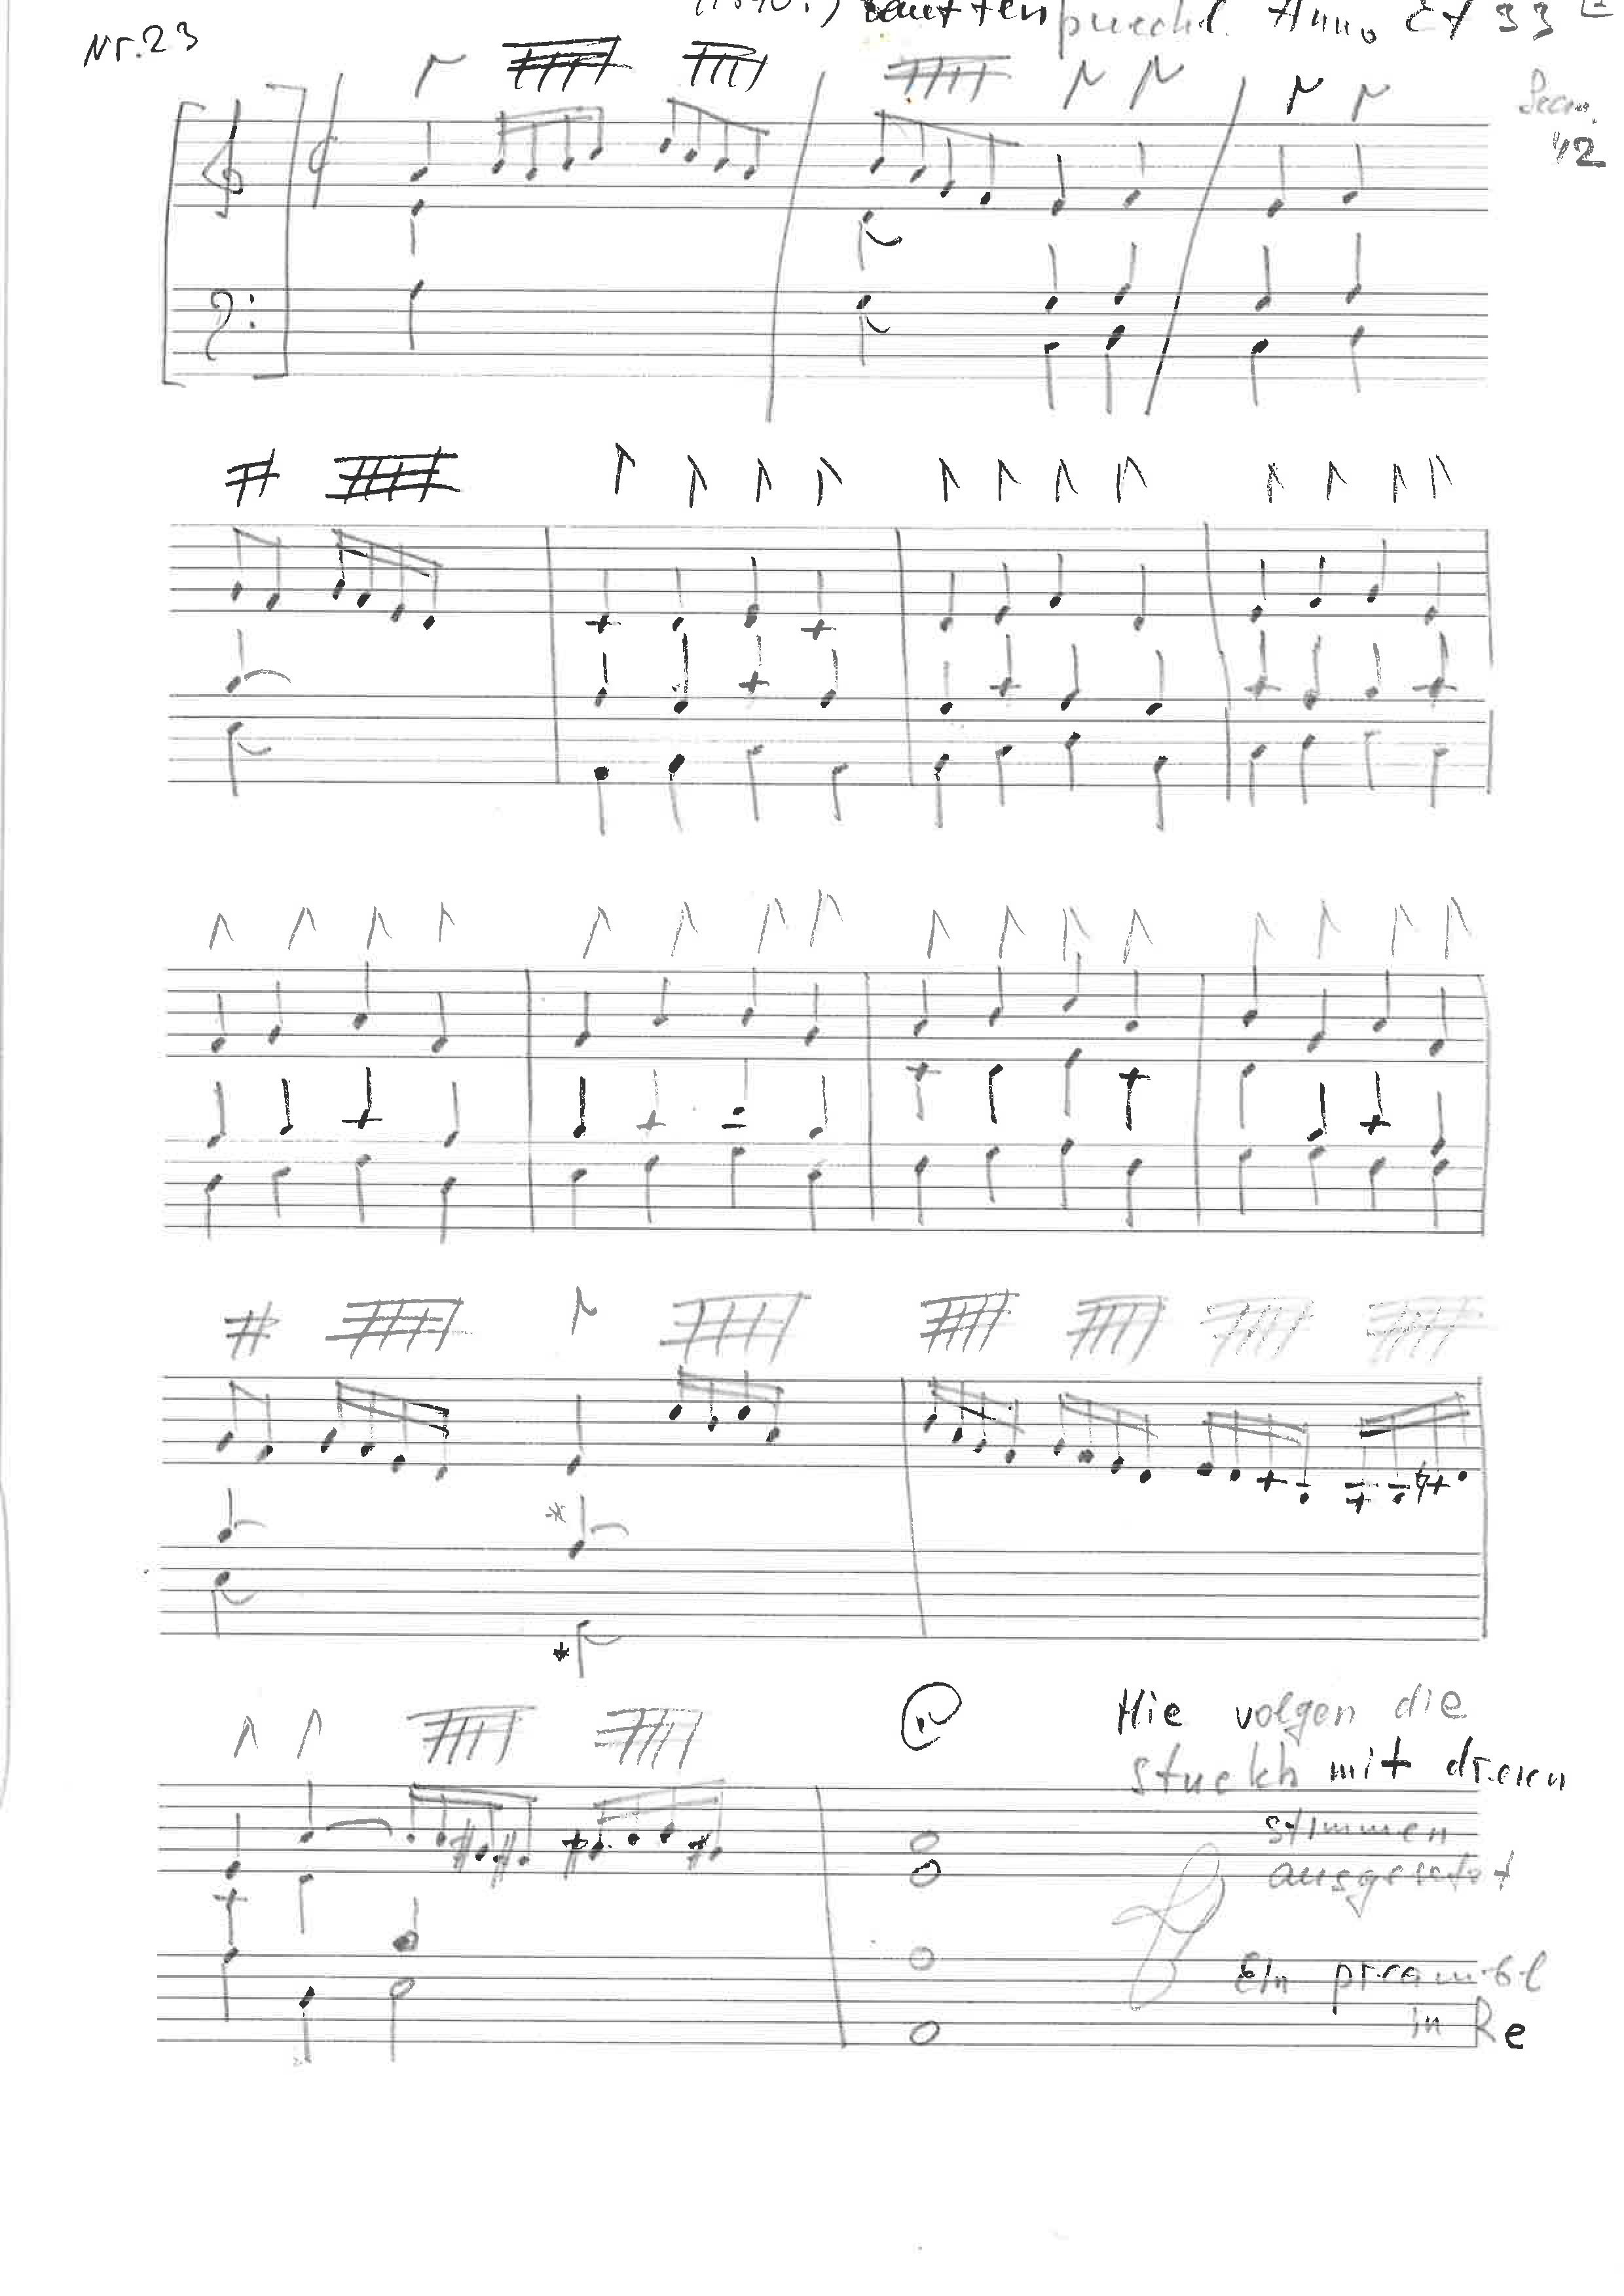 Lautten puechl. Anno 33
Nr. 23
42
Hie volgen die
stuckh mit dreien
stimmen
ausgesetzt
Ein preambl
in Re